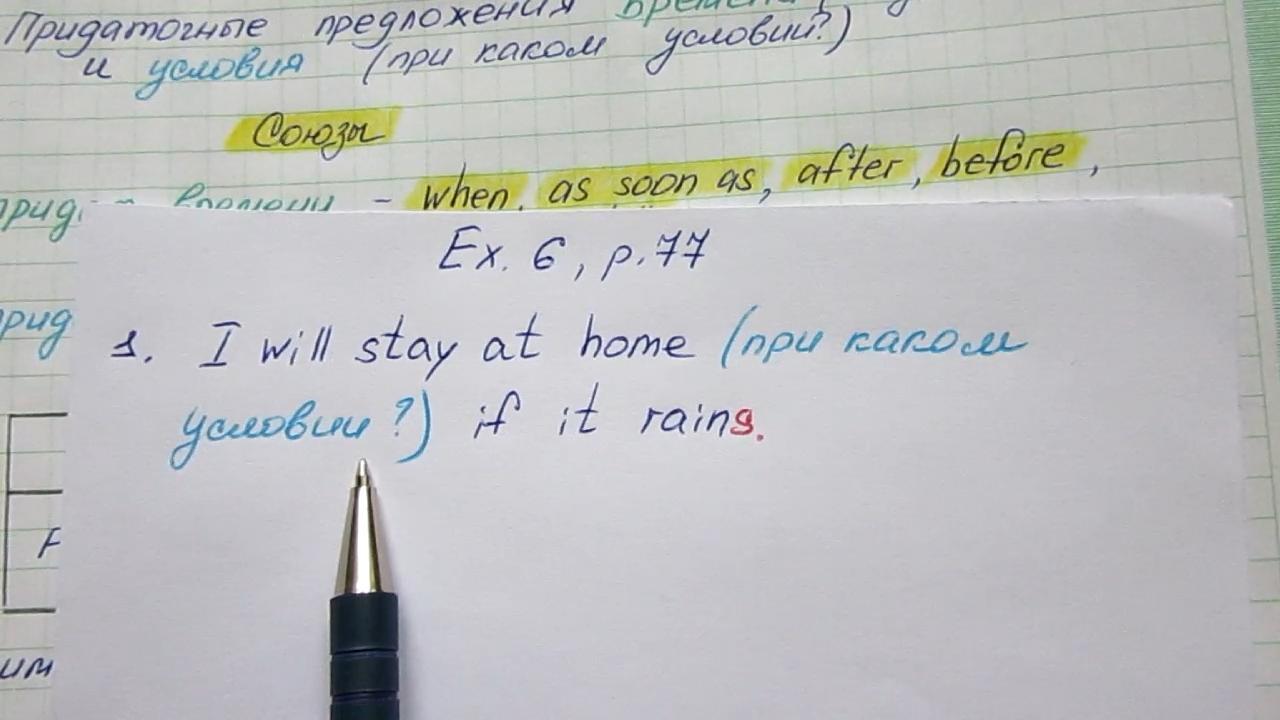 Придаточные предложения времени
и условия (при каком условии?)
Союзы
времени - when, as soon as, after, before,
Ex. 6, p. 77
1. I will stay at home (при каком
условии?) if it rains.